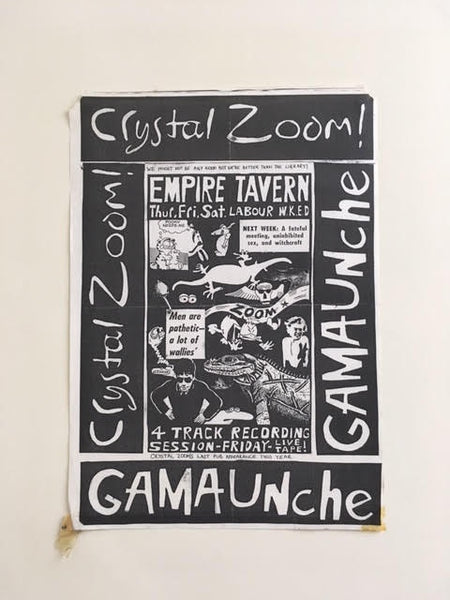 Crystal Zoom!
Crystal Zoom!
WE MIGHT NOT BE ANY GOOD BUT WE'RE BETTER THAN THE LIBRARY!
EMPIRE TAVERN
Thur, Fri, Sat. LABOUR W.K.E.D
NEXT WEEK: A fateful
meeting, uninhibited
sex, and witchcraft
ZOOM
'Men are
pathetic—
a lot of
wallies'
4 TRACK RECORDING
SESSION-FRIDAY-LIVE
TAPE!
CRYSTAL ZOOMS LAST PUB APPEARANCE THIS YEAR
GAMAUNche
GAMAUNche